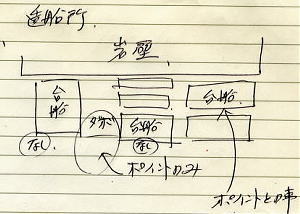 造船所
岩壁
台船
台船
タボ
台船
なし
なし
ポイントのみ
ポイントとの事